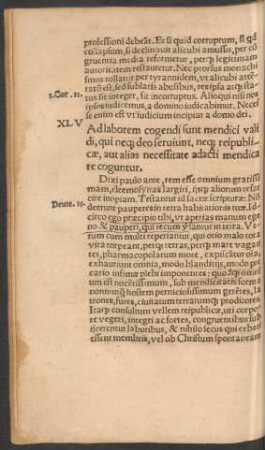 professioni debeāt. Et si quid corruptum, si qđ
collapsum, si declinauit alicubi amussis, per cō
gruentia media reformetur, perꝗ legitimam
autoritatem restauretur. Nec prorsus monachi
smus tollatur per tyrannidem,
tus sit integer, sit incorruptus. Alioqui nisi nos
ipsos iudicemus, a domino iudicabimur. Necesse
se enim est vt iudicium incipiat a domo dei.
1. Cor. 11.
XLV
Ad laborem cogendi sunt mendici vali
di, qui neqꝫ deo seruiunt, neqꝫ reipubli-
cæ, aut alias necessitate adacti mendica
re coguntur.
Dixi paulo ante, rem esse omnium gratissi
mam, eleemosynas largiri, aliorum
cire inopiam. Testantur id sacræ scripturæ. Nō
deerunt pauperes in terra habitationis tuæ. Id
circo ego præcipio tibi, vt aperias manum ege
no & pauperi, qui tecum versantur in terra. Ve
rum cum multi reperiantur, qui otio malo tota
vita torpeant, perꝗ terras, perꝗ mare vagan
tes, pharmacopolarum more, expilent omnia,
exhauriunt omnia, modo blandities, modo pre
cario infimæ plebi imponentes: quodꝗ omni
um est nocētissimum, sub mendicitatis forma
nonnunꝗ̄ hostem perniciosissimum gerētes,
tiones, fures, ciuitatum terrarumꝗ proditores.
Itaꝗ consultum vellem reipublicæ, uti corpo
re vegeti, integri ac fortes, congruentibus sub
ijcerentur laboribus, & nihilo secus qui ex ha
essent membris, vel ob Christum sponte aream
Deute. 15.